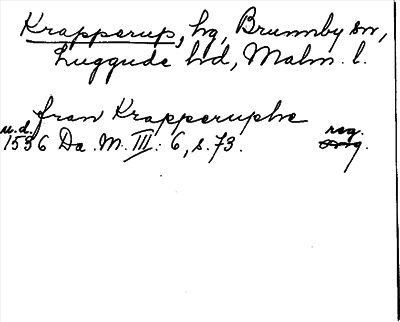 Krapperup, hg, Brunnby sn,
Luggude hd, Malm. l.
fran Krapperuphe
u.d. reg.
1536 Da. M. III: 6, s. 73. orig.